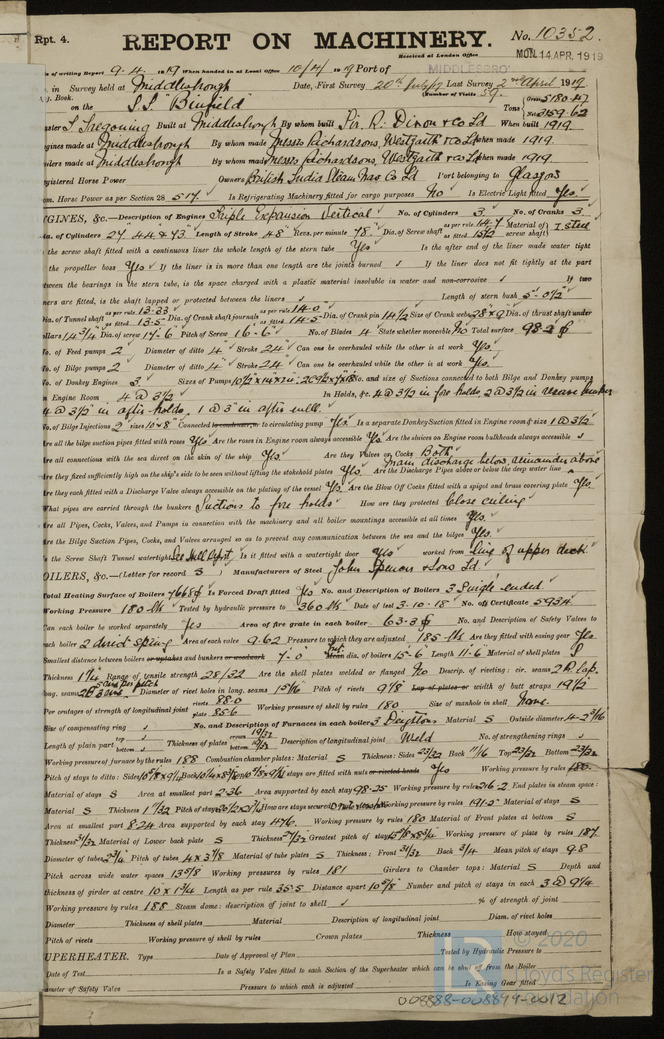 Rpt. 4.
REPORT ON MACHINERY.
No. 10352.
Received at London Office
MON. 14 APR. 1919
of writing Report 9.4.1919 When handed in at Local Office 10/4/19 Port of MIDDLESBRO'
in Survey held at Middlesbrough Date, First Survey 20th July/17 Last Survey 2nd April 1919
Book. (Number of Visits 59.)
on the S.S. "Binfield" Tons { Gross 5180.47
Net 3159.62
Master S. Tregoning Built at Middlesbrough By whom built Sir R. Dixon & Co Ld When built 1919.
Engines made at Middlesbrough By whom made Messrs Richardsons, Westgarth & Co Ld when made 1919.
Boilers made at Middlesbrough By whom made Messrs Richardsons, Westgarth & Co Ld when made 1919.
Registered Horse Power Owners British India Steam Nav. Co Ld Port belonging to Glasgow
Nom. Horse Power as per Section 28 517 Is Refrigerating Machinery fitted for cargo purposes No Is Electric Light fitted Yes
ENGINES, &c.—Description of Engines Triple Expansion Vertical No. of Cylinders 3 No. of Cranks 3
Dia. of Cylinders 27. 44 & 73" Length of Stroke 48" Revs. per minute 78 Dia. of Screw shaft as per rule 14.7 as fitted 15 1/2 Material of screw shaft I. Steel
Is the screw shaft fitted with a continuous liner the whole length of the stern tube Yes Is the after end of the liner made water tight
in the propeller boss Yes If the liner is in more than one length are the joints burned If the liner does not fit tightly at the part
between the bearings in the stern tube, is the space charged with a plastic material insoluble in water and non-corrosive If two
liners are fitted, is the shaft lapped or protected between the liners Length of stern bush 5'-0 1/2"
Dia. of Tunnel shaft as per rule 13.33 as fitted 13.5 Dia. of Crank shaft journals as per rule 14.0 as fitted 14.5 Dia. of Crank pin 14 1/2 Size of Crank webs 28 x 9 Dia. of thrust shaft under
collars 14 3/4 Dia. of screw 17'-6" Pitch of Screw 16'-6" No. of Blades 4 State whether moveable No Total surface 98.2
No. of Feed pumps 2 Diameter of ditto 4" Stroke 24" Can one be overhauled while the other is at work Yes
No. of Bilge pumps 2 Diameter of ditto 4" Stroke 24" Can one be overhauled while the other is at work Yes
No. of Donkey Engines 3 Sizes of Pumps No. and size of Suctions connected to both Bilge and Donkey pumps
In Engine Room 4 @ 3 1/2 In Holds, &c. 4 @ 3 1/2 in fore holds, 2 @ 3 1/2 in reserve bunker
4 @ 3 1/2 in after holds. 1 @ 3" in after well.
No. of Bilge Injections 2 sizes 10 x 8" Connected to circulating pump Yes Is a separate Donkey Suction fitted in Engine room & size 1 @ 3 1/2
Are all the bilge suction pipes fitted with roses Yes Are the roses in Engine room always accessible Yes Are the sluices on Engine room bulkheads always accessible
Are all connections with the sea direct on the skin of the ship Yes Are they Valves or Cocks Both
Are they fixed sufficiently high on the ship's side to be seen without lifting the stokehold plates Yes Are the Discharge Pipes above or below the deep water line main discharge below, remainder above
Are they each fitted with a Discharge Valve always accessible on the plating of the vessel Yes Are the Blow Off Cocks fitted with a spigot and brass covering plate Yes
What pipes are carried through the bunkers Suctions to fore holds How are they protected Close ceiling
Are all Pipes, Cocks, Valves, and Pumps in connection with the machinery and all boiler mountings accessible at all times Yes
Are the Bilge Suction Pipes, Cocks, and Valves arranged so as to prevent any communication between the sea and the bilges Yes
Is the Screw Shaft Tunnel watertight See Hull Report Is it fitted with a watertight door Yes worked from line of upper deck.
BOILERS, &c.—(Letter for record S) Manufacturers of Steel John Spencer & Sons Ld.
Total Heating Surface of Boilers 7668 Is Forced Draft fitted Yes No. and Description of Boilers 3 Single ended.
Working Pressure 180 lbs Tested by hydraulic pressure to 360 lbs Date of test 3.10.18 No. of Certificate 5934
Can each boiler be worked separately Yes Area of fire grate in each boiler 63.3 No. and Description of Safety Valves to
each boiler 2 direct spring Area of each valve 9.62 Pressure to which they are adjusted 185 lbs Are they fitted with easing gear Yes
Smallest distance between boilers or uptakes and bunkers or woodwork 7'-0" Mean dia. of boilers 15'-6" Length 11'-6" Material of shell plates S
Thickness 1 1/4 Range of tensile strength 28/32 Are the shell plates welded or flanged No Descrip. of riveting: cir. seams 2 R. lap.
long. seams Diameter of rivet holes in long. seams 1 5/16 Pitch of rivets 9 1/8 Lap of plates or width of butt straps 19 1/2
Per centages of strength of longitudinal joint rivets 88.0 plate 85.6 Working pressure of shell by rules 180 Size of manhole in shell None.
Size of compensating ring No. and Description of Furnaces in each boiler 3 Deightons Material S Outside diameter 4-2 3/16
Length of plain part top bottom Thickness of plates crown bottom 19/32 Description of longitudinal joint Weld No. of strengthening rings
Working pressure of furnace by the rules 188 Combustion chamber plates: Material S Thickness: Sides 23/32 Back 11/16 Top 23/32 Bottom 23/32
Pitch of stays to ditto: Sides Back Top If stays are fitted with nuts or riveted heads Yes Working pressure by rules 180.
Material of stays S Area at smallest part 2.36 Area supported by each stay 98.25 Working pressure by rules 216.2 End plates in steam space:
Material S Thickness 1 1/32 Pitch of stays How are stays secured Working pressure by rules 191.5 Material of stays S
Area at smallest part 8.24 Area supported by each stay 476. Working pressure by rules 180 Material of Front plates at bottom S
Thickness 31/32 Material of Lower back plate S Thickness 27/32 Greatest pitch of stays Working pressure of plate by rules 187.
Diameter of tubes 2 3/4 Pitch of tubes 4 x 3 7/8 Material of tube plates S Thickness: Front 31/32 Back 3/4 Mean pitch of stays 9.8
Pitch across wide water spaces 13 5/8 Working pressures by rules 181 Girders to Chamber tops: Material S Depth and
thickness of girder at centre 10 x 1 3/4 Length as per rule 35.5 Distance apart 10 5/8 Number and pitch of stays in each 3 @ 9 1/4
Working pressure by rules 188 Steam dome: description of joint to shell % of strength of joint
Diameter Thickness of shell plates Material Description of longitudinal joint Diam. of rivet holes
Pitch of rivets Working pressure of shell by rules Crown plates Thickness How stayed
SUPERHEATER. Type Date of Approval of Plan Tested by Hydraulic Pressure to
Date of Test Is a Safety Valve fitted to each Section of the Superheater which can be shut off from the Boiler
Diameter of Safety Valve Pressure to which each is adjusted Is Easing Gear fitted
© 2020
Lloyd's Register
Foundation
008888-008899-0012